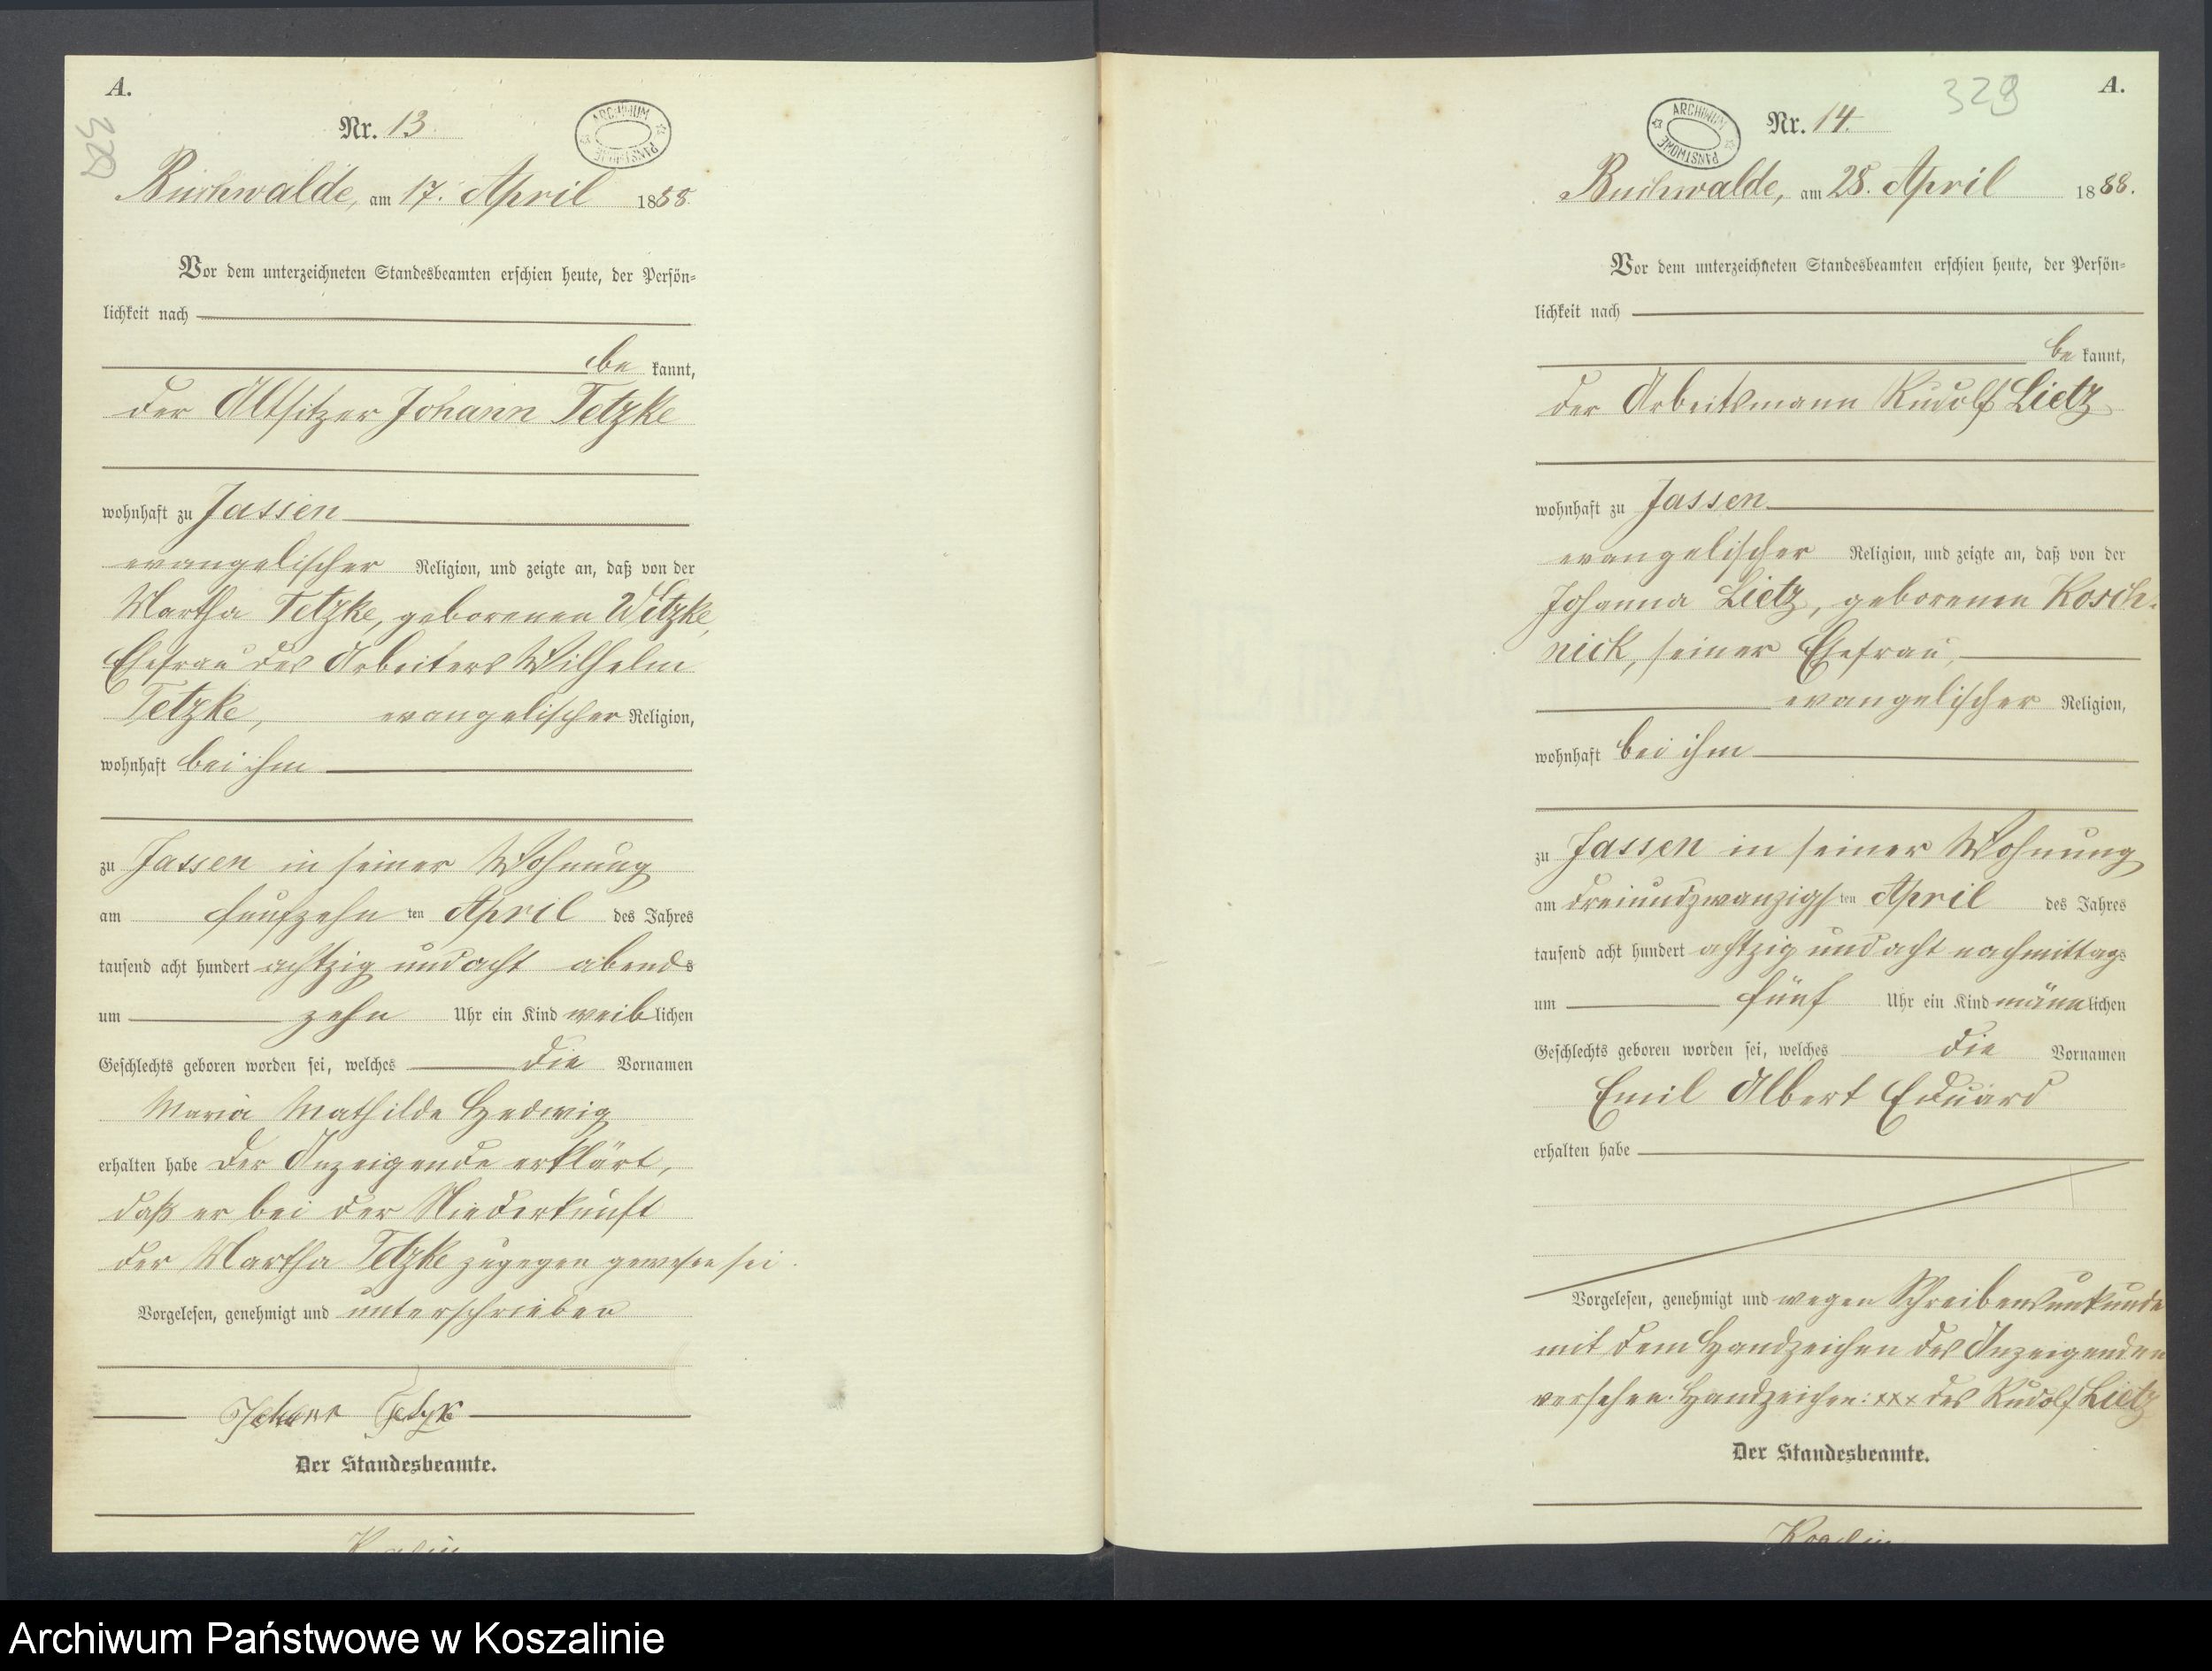 A.
328
Nr. 13.
ARCHIWUM PAŃSTWOWE
Buchwalde, am 17. April 1888.
Vor dem unterzeichneten Standesbeamten erschien heute, der Persön-
lichkeit nach
be kannt,
der Altsitzer Johann Tetzke
wohnhaft zu Jassen
evangelischer Religion, und zeigte an, daß von der
Martha Tetzke, geborenen Witzke,
Ehefrau des Arbeiters Wilhelm
Tetzke, evangelischer Religion,
wohnhaft bei ihm
zu Jassen in seiner Wohnung
am fünfzehn ten April des Jahres
tausend acht hundert achtzig und acht abends
um zehn Uhr ein Kind weiblichen
Geschlechts geboren worden sei, welches die Vornamen
Maria Mathilde Hedwig
erhalten habe Der Anzeigende erklärt,
daß er bei der Niederkunft
der Martha Tetzke zugegen gewesen sei.
Vorgelesen, genehmigt und unterschrieben
Johann Tetzke
Der Standesbeamte.
A.
329
Nr. 14.
ARCHIWUM PAŃSTWOWE
Buchwalde, am 28. April 1888.
Vor dem unterzeichneten Standesbeamten erschien heute, der Persön-
lichkeit nach
be kannt,
der Arbeitsmann Rudolf Lietz
wohnhaft zu Jassen
evangelischer Religion, und zeigte an, daß von der
Johanna Lietz, geborenen Kosch-
nick, seiner Ehefrau,
evangelischer Religion,
wohnhaft bei ihm
zu Jassen in seiner Wohnung
am dreiundzwanzigsten April des Jahres
tausend acht hundert achtzig und acht nachmittags
um fünf Uhr ein Kind männlichen
Geschlechts geboren worden sei, welches die Vornamen
Emil Albert Eduard
erhalten habe
Vorgelesen, genehmigt und wegen Schreibensunkunde
mit dem Handzeichen des Anzeigenden
versehen. Handzeichen: xxx des Rudolf Lietz
Der Standesbeamte.
Archiwum Państwowe w Koszalinie